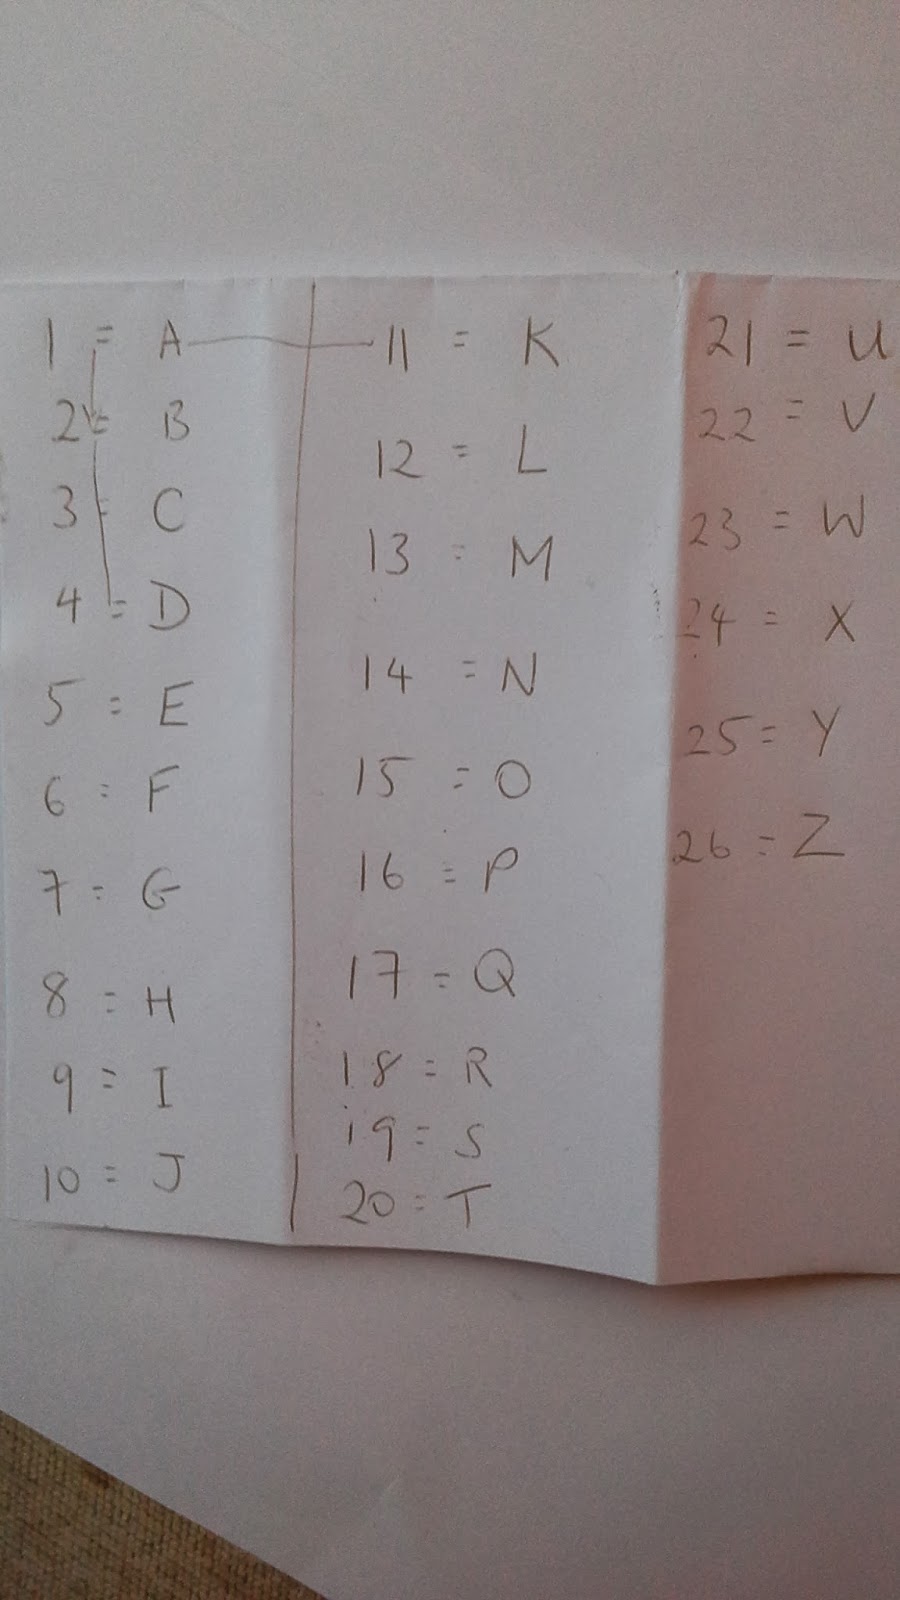 1 = A
2 = B
3 = C
4 = D
5 = E
6 = F
7 = G
8 = H
9 = I
10 = J
11 = K
12 = L
13 = M
14 = N
15 = O
16 = P
17 = Q
18 = R
19 = S
20 = T
21 = U
22 = V
23 = W
24 = X
25 = Y
26 = Z